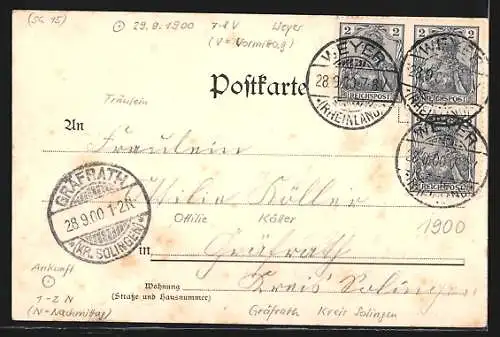 (SC 15)
29.9.1900 7-8 V Weyer
(V = Vormittag)
2 2
REICHSPOST
WEYER
28.9.00 7-8 V
(RHEINLAND)
WEYER
(RHEINLAND)
WEYER
28.9.00
(RHEINLAND)
REICHSPOST
REICHSPOST
Postkarte
Fräulein
An Fräulein
Ottilie Köller
Ottilie Köller
GRÄFRATH
28.9.00 1-2N
(KR. SOLINGEN)
1900
in Gräfrath
Ankunft
Kreis Solingen
Wohnung
(Straße und Hausnummer)
1-2 N
(N=Nachmittag)
Gräfrath Kreis Solingen